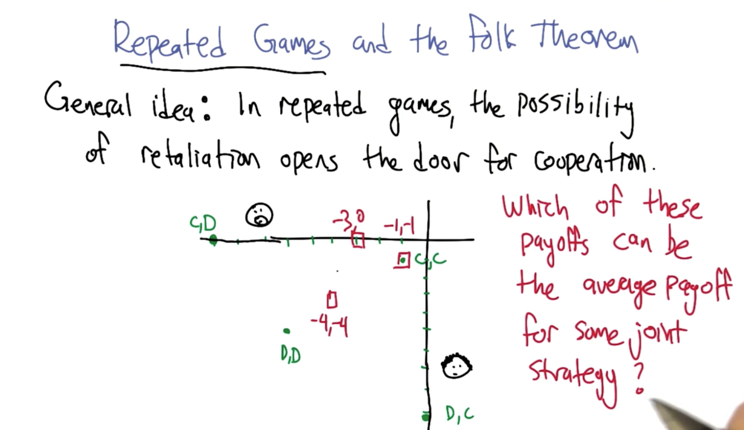 Repeated Games and the Folk Theorem
General idea: In repeated games, the possibility
of retaliation opens the door for cooperation.
C,D
-3,0
-1,-1
C,C
-4,-4
D,D
D,C
Which of these
payoffs can be
the average payoff
for some joint
strategy?